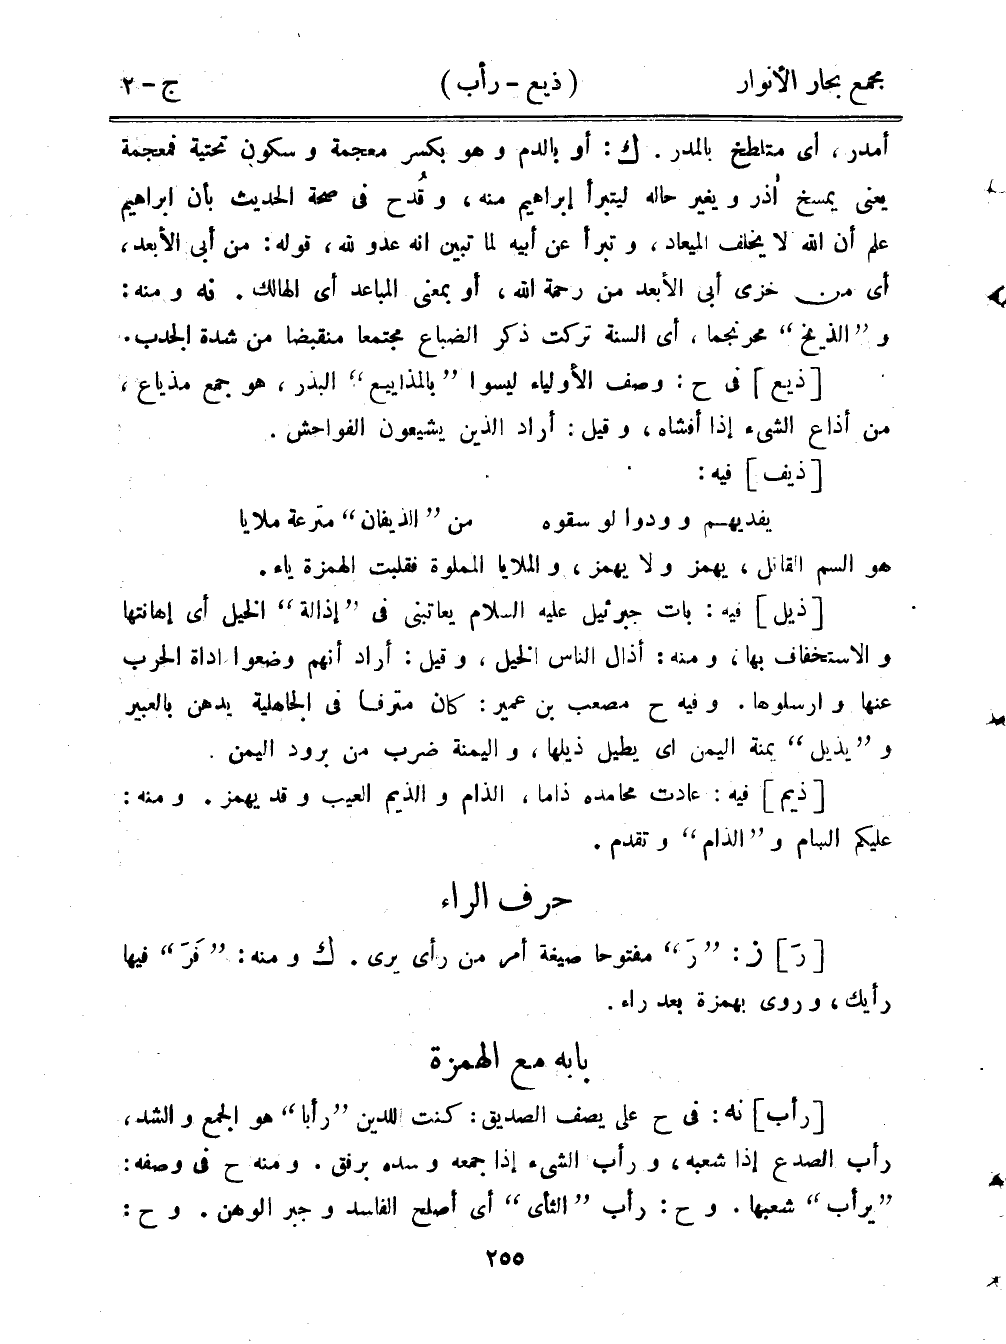 مجمع بحار الأنوار (ذيع - رأب) ج - ٢
أمدر، أى متلطخ بالمدر. ك: أو بالدم و هو بكسر معجمة و سكون تحتية فمعجمة
يعنى يمسخ أذر و يغير حاله ليتبرأ إبراهيم منه، و قُدح فى صحة الحديث بأن ابراهيم
علم أن الله لا يخلف الميعاد، و تبرأ عن أبيه لما تبين انه عدو لله، قوله: من أبى الأبعد،
أى من خزى أبى الأبعد من رحمة الله، أو بمعنى المباعد أى الهالك. نه و منه:
و ”الذيخ“ محرنجما، أى السنة تركت ذكر الضباع مجتمعا منقبضا من شدة الجدب.
[ذيع] فى ح: وصف الأولياء ليسوا ”بالمذاييع“ البذر، هو جمع مذياع،
من أذاع الشىء إذا أفشاه، و قيل: أراد الذين يشيعون الفواحش.
[ذيف] فيه:
يفديهم و ودوا لو سقوه من ”الذيفان“ مترعة ملايا
هو السم القاتل، يهمز و لا يهمز، و الملايا المملوة فقلبت الهمزة ياء.
[ذيل] فيه: بات جبرئيل عليه السلام يعاتبنى فى ”إذالة“ الخيل أى إهانتها
و الاستخفاف بها، و منه: أذال الناس الخيل، و قيل: أراد أنهم وضعوا اداة الحرب
عنها و ارسلوها. و فيه ح مصعب بن عمير: كان مترفا فى الجاهلية يدهن بالعبير
و ”يذيل“ يمنة اليمن اى يطيل ذيلها، و اليمنة ضرب من برود اليمن.
[ذيم] فيه: عادت محامده ذاما، الذام و الذيم العيب و قد يهمز. و منه:
عليكم السام و ”الذام“ و تقدم.
حرف الراء
[رَ] ز: ”رَ“ مفتوحا صيغة أمر من رأى يرى. ك و منه: ”فَرَ“ فيها
رأيك، و روى بهمزة بعد راء.
بابه مع الهمزة
[رأب] نه: فى ح على يصف الصديق: كنت للدين ”رأبا“ هو الجمع و الشد،
رأب الصدع إذا شعبه، و رأب الشىء إذا جمعه و سده برفق. و منه ح فى وصفه:
”يرأب“ شعبها. و ح: رأب ”الثأى“ أى أصلح الفاسد و جبر الوهن. و ح:
٢٥٥